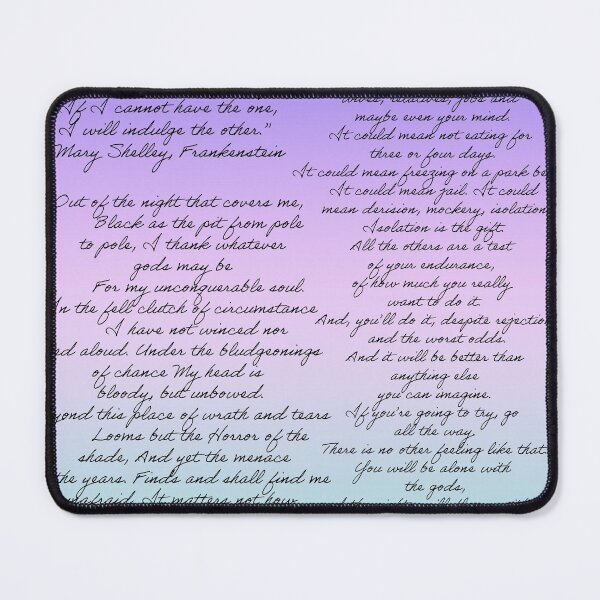 If I cannot have the one,
I will indulge the other."
Mary Shelley, Frankenstein
Out of the night that covers me,
Black as the pit from pole
to pole, I thank whatever
gods may be
For my unconquerable soul.
In the fell clutch of circumstance
I have not winced nor
aloud. Under the bludgeonings
of chance My head is
bloody, but unbowed.
yond this place of wrath and tears
Looms but the Horror of the
shade, And yet the menace
the years. Finds and shall find me
afraid. It matters not how
wives, relatives, jobs and
maybe even your mind.
It could mean not eating for
three or four days.
It could mean freezing on a park be
It could mean jail. It could
mean derision, mockery, isolation
Isolation is the gift.
All the others are a test
of your endurance,
of how much you really
want to do it.
And, you'll do it, despite rejection
and the worst odds.
And it will be better than
anything else
you can imagine.
If you're going to try, go
all the way.
There is no other feeling like that.
You will be alone with
the gods,